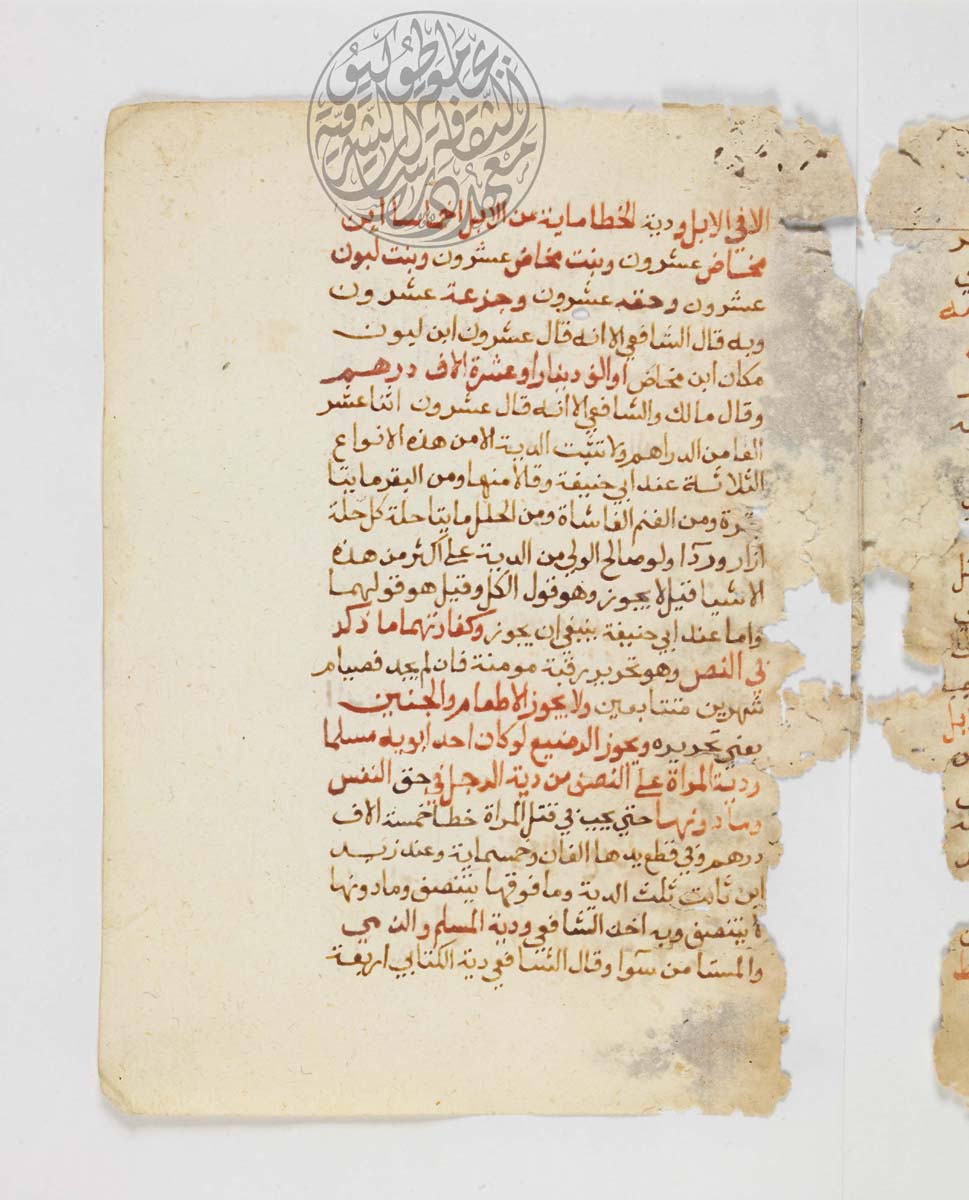 الا في الابل ودية الخطا ماية من الابل اخماسا ابن
مخاض عشرون وبنت مخاض عشرون وبنت لبون
عشرون وحقه عشرون وجزعة عشرون
وبه قال الشافعي الا انه قال عشرون ابن لبون
مكان ابن مخاض او الف دينار او عشرة الاف درهم
وقال مالك والشافعي الا انه قال عشرون اثنا عشر
الفا من الدراهم ولا تثبت الدية الا من هذه الانواع
الثلاثة عند ابي حنيفة وقالا منها ومن البقر مايتا
بقرة ومن الغنم الفا شاة ومن الحلل مايتا حلة كل حلة
ازار وردآ ولو صالح الولي من الدية علي اكثر من هذه
الاشيا قيل لا يجوز وهو قول الكل وقيل هو قولهما
واما عند ابي حنيفة ينبغي ان يجوز وكفارتهما ما ذكر
في النص وهو تحرير رقبة مومنة فان لم يجد فصيام
شهرين متتابعين ولا يجوز الاطعام والجنين
يعني تحريره ويجوز الرضيع لو كان احد ابويه مسلما
ودية المراة علي النصف من دية الرجل في حق النفس
وما دونها حتي يجب في قتل المراة خطا خمسة الاف
درهم وفي قطع يدها الفان وخمسماية وعند زيد
ابن ثابت ثلث الدية وما فوقها يتنصف وما دونها
لا يتنصف وبه اخذ الشافعي ودية المسلم والذمي
والمستامن سوآ وقال الشافعي دية الكتابي اربعة